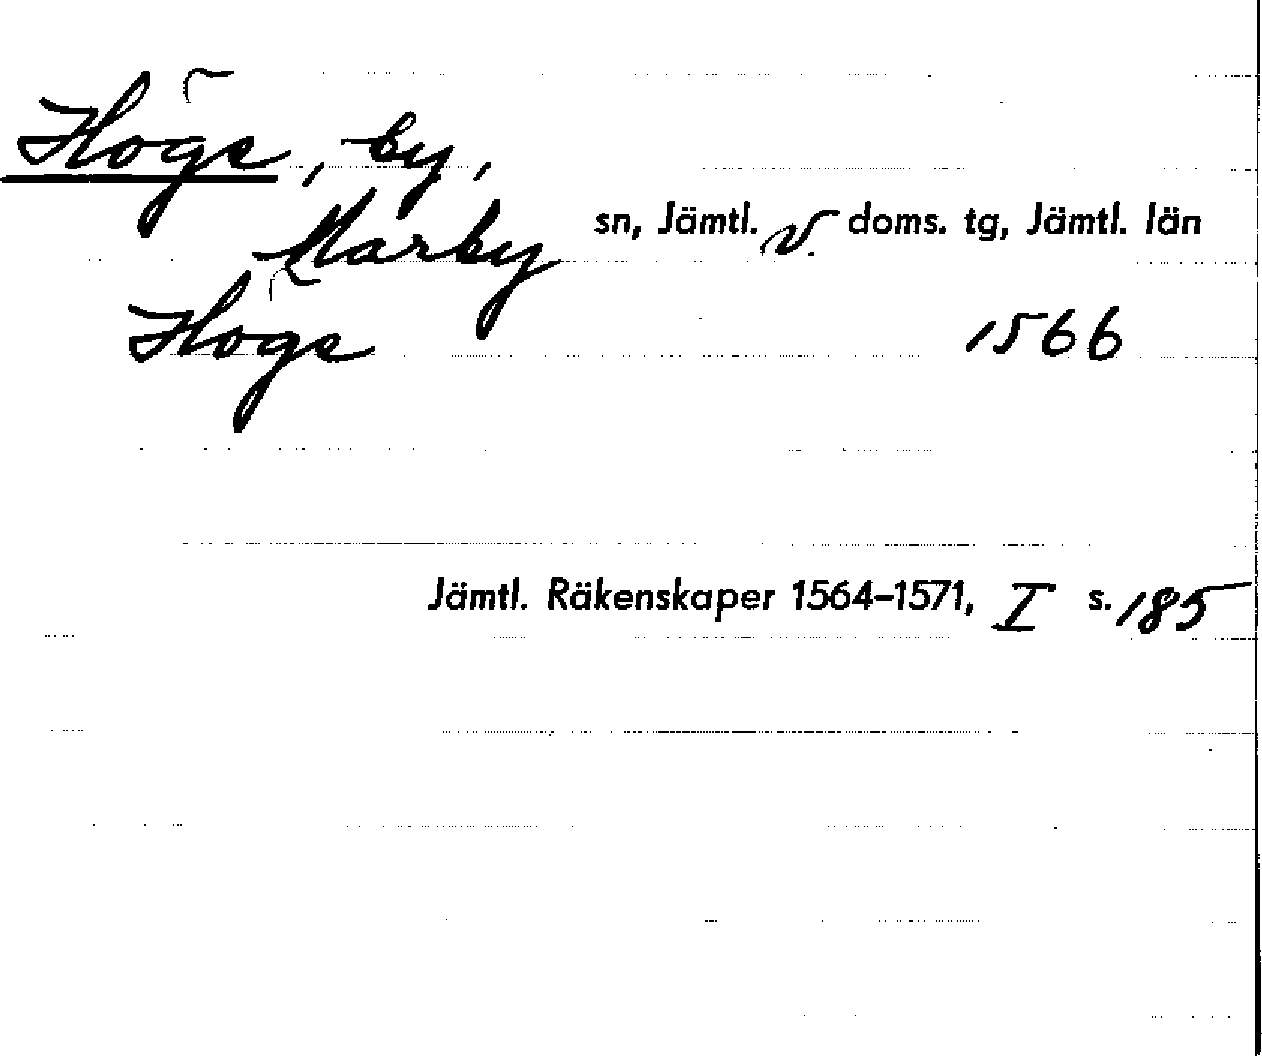 Höge, by,
Marby sn, Jämtl. v. doms. tg, Jämtl. län
Höge 1566
Jämtl. Räkenskaper 1564–1571, I s. 185